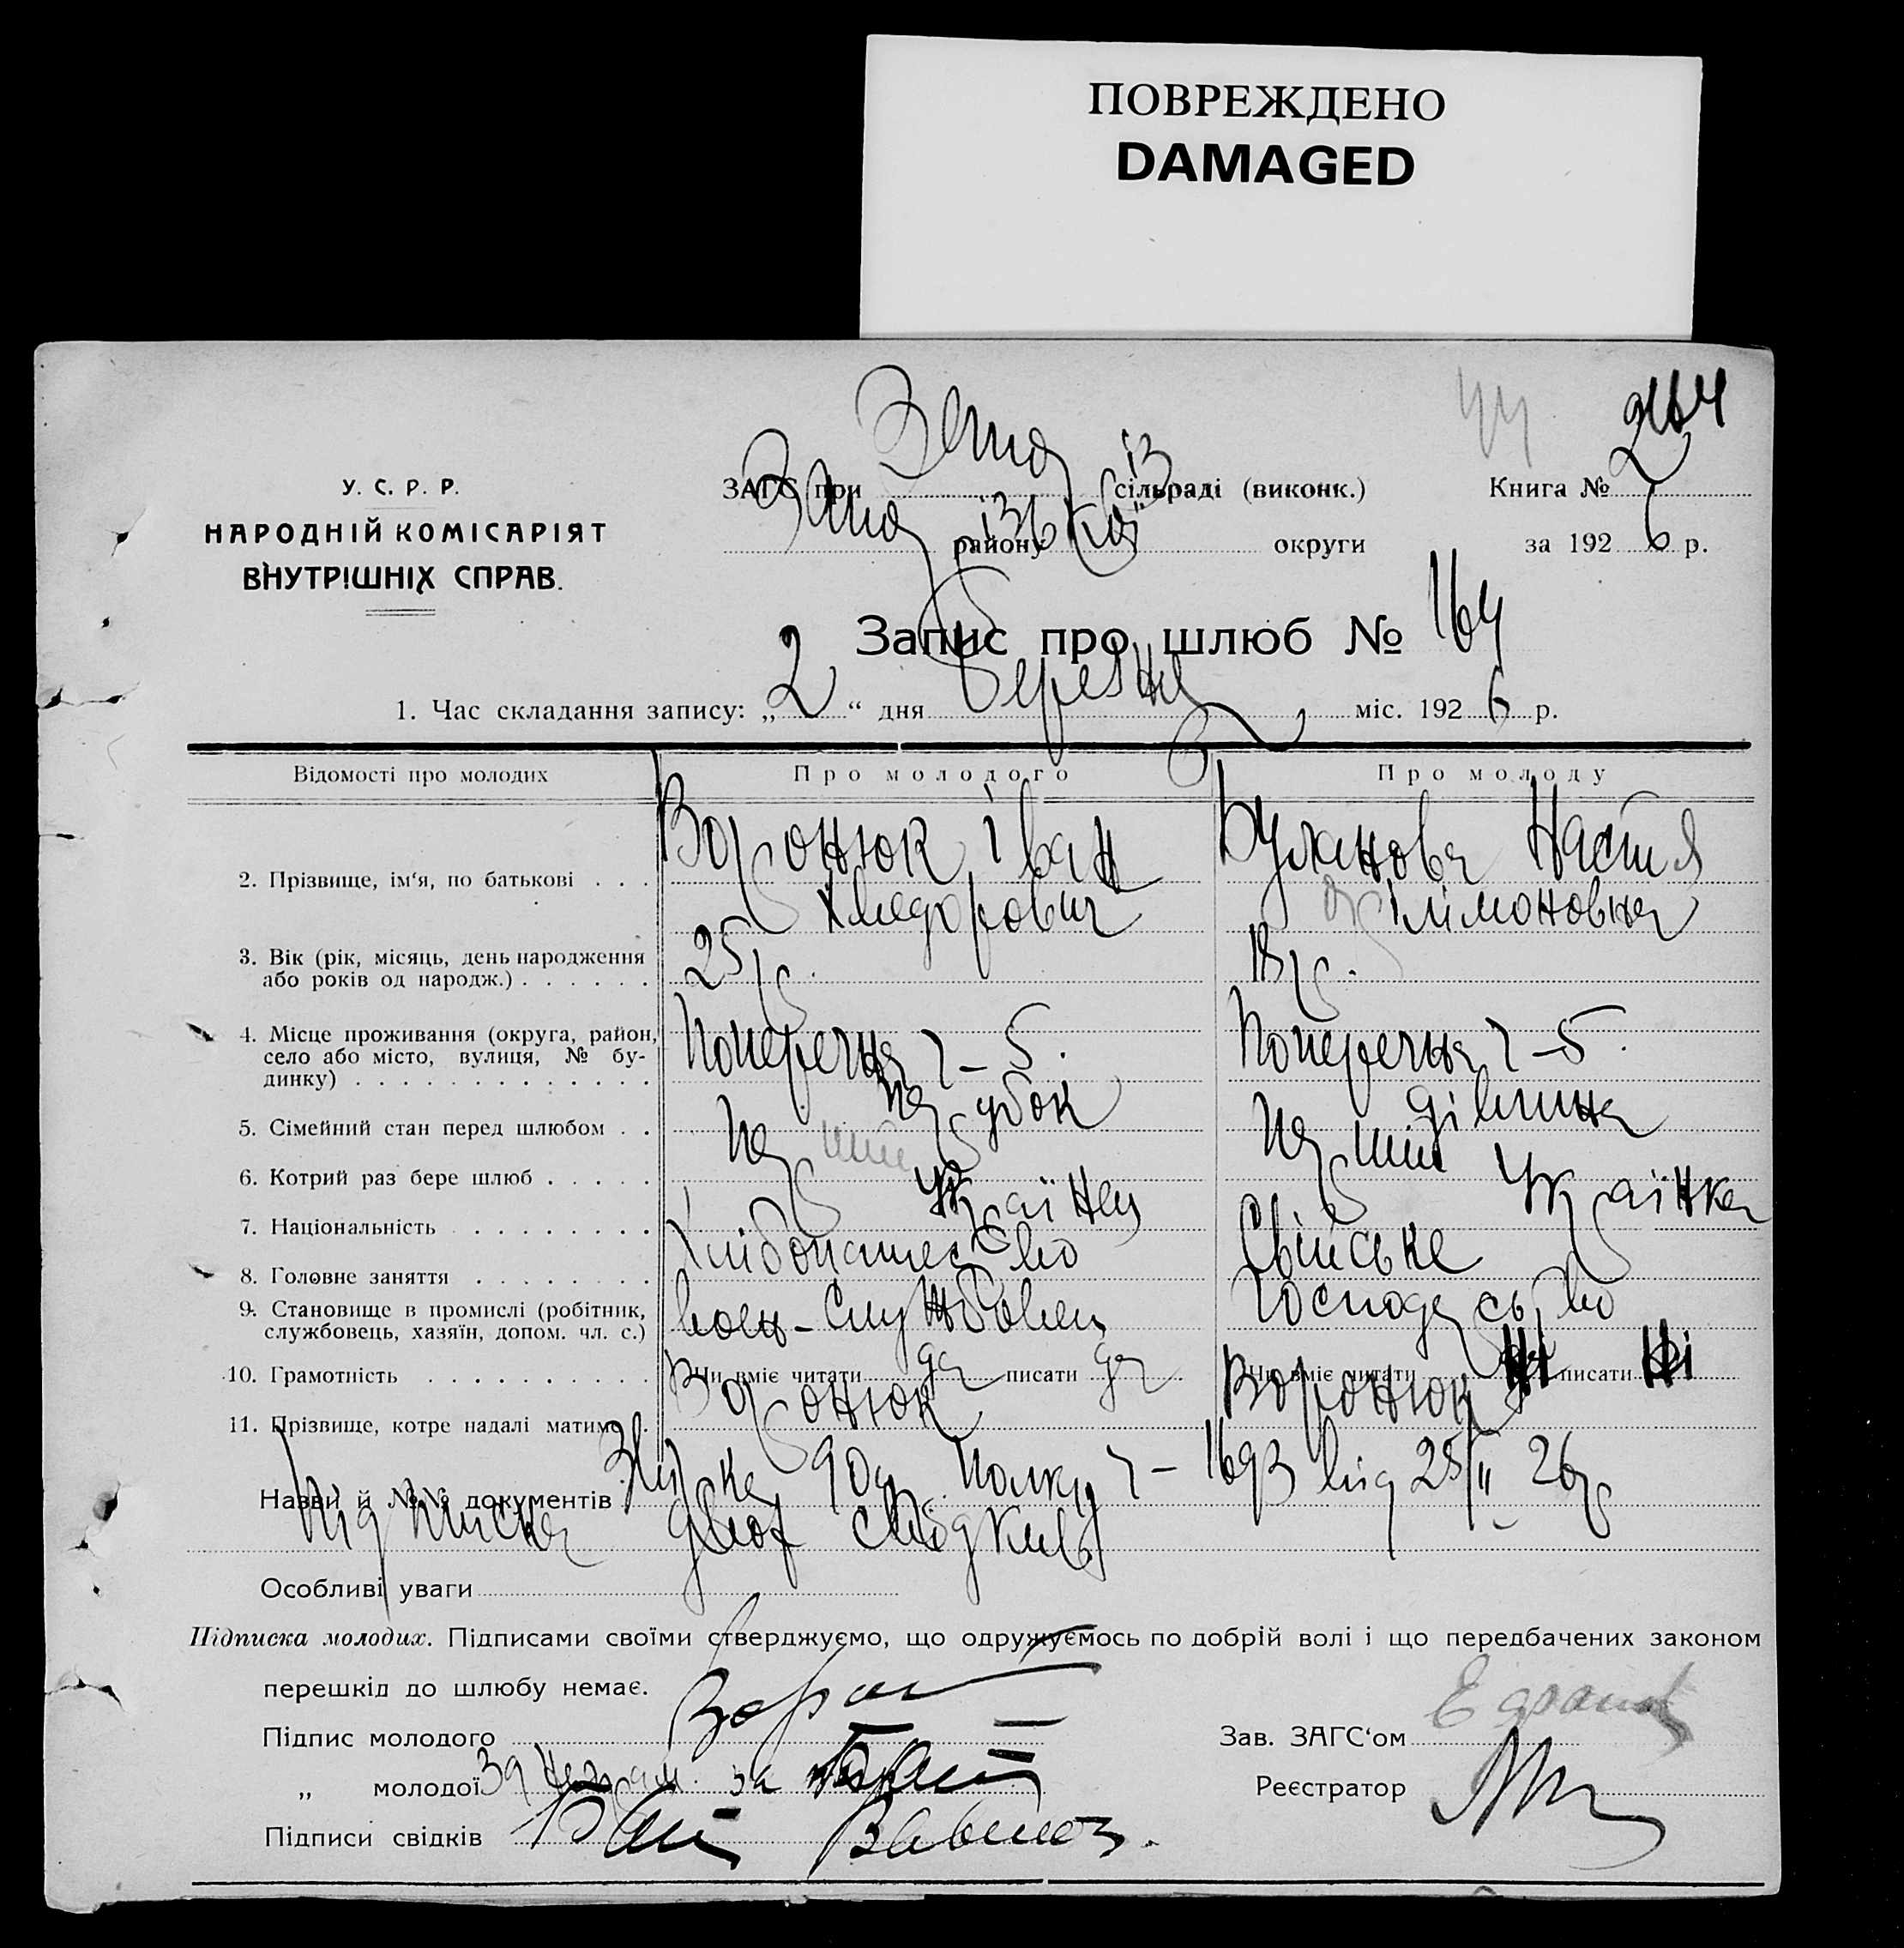 ПОВРЕЖДЕНО
DAMAGED
44 264
У. С. Р. Р.
НАРОДНІЙ КОМІСАРІЯТ
ВНУТРІШНІХ СПРАВ.
ЗАГС при сільраді (виконк.) Книга № 2
району округи за 1926 р.
Запис про шлюб № 164
1. Час складання запису: „2“ дня березня міс. 1926 р.
Відомості про молодих Про молодого Про молоду
2. Прізвище, ім‘я, по батькові . . . Воронюк Іван Буланова Настя
Хведорович Філімоновна
3. Вік (рік, місяць, день народження
або років од народж.) . . . . . . 25 р. 18 р.
4. Місце проживання (округа, район,
село або місто, вулиця, № бу-
динку) . . . . . . . . . . . . . Поперечна ч – 5. Поперечна ч – 5.
5. Сімейний стан перед шлюбом . . парубок дівчина
6. Котрий раз бере шлюб . . . . . перший перший
7. Національність . . . . . . . . Українец Українка
8. Головне заняття . . . . . . . . Хлібопашество Свійське
9. Становище в промислі (робітник,
службовець, хазяїн, допом. чл. с.) воен-службовец господарство
10. Грамотність . . . . . . . . . . Чи вміє читати да писати да Чи вміє читати Ні писати Ні
11. Прізвище, котре надалі матиме . Воронюк Воронюк
Назви й №№ документів полку ч – 1693 від 25/II 26 р
Підписка двох свідків
Особливі уваги
Підписка молодих. Підписами своїми стверджуємо, що одружуємось по добрій волі і що передбачених законом
перешкід до шлюбу немає.
Підпис молодого Зав. ЗАГС‘ом
„ молодої за Реєстратор
Підписи свідків